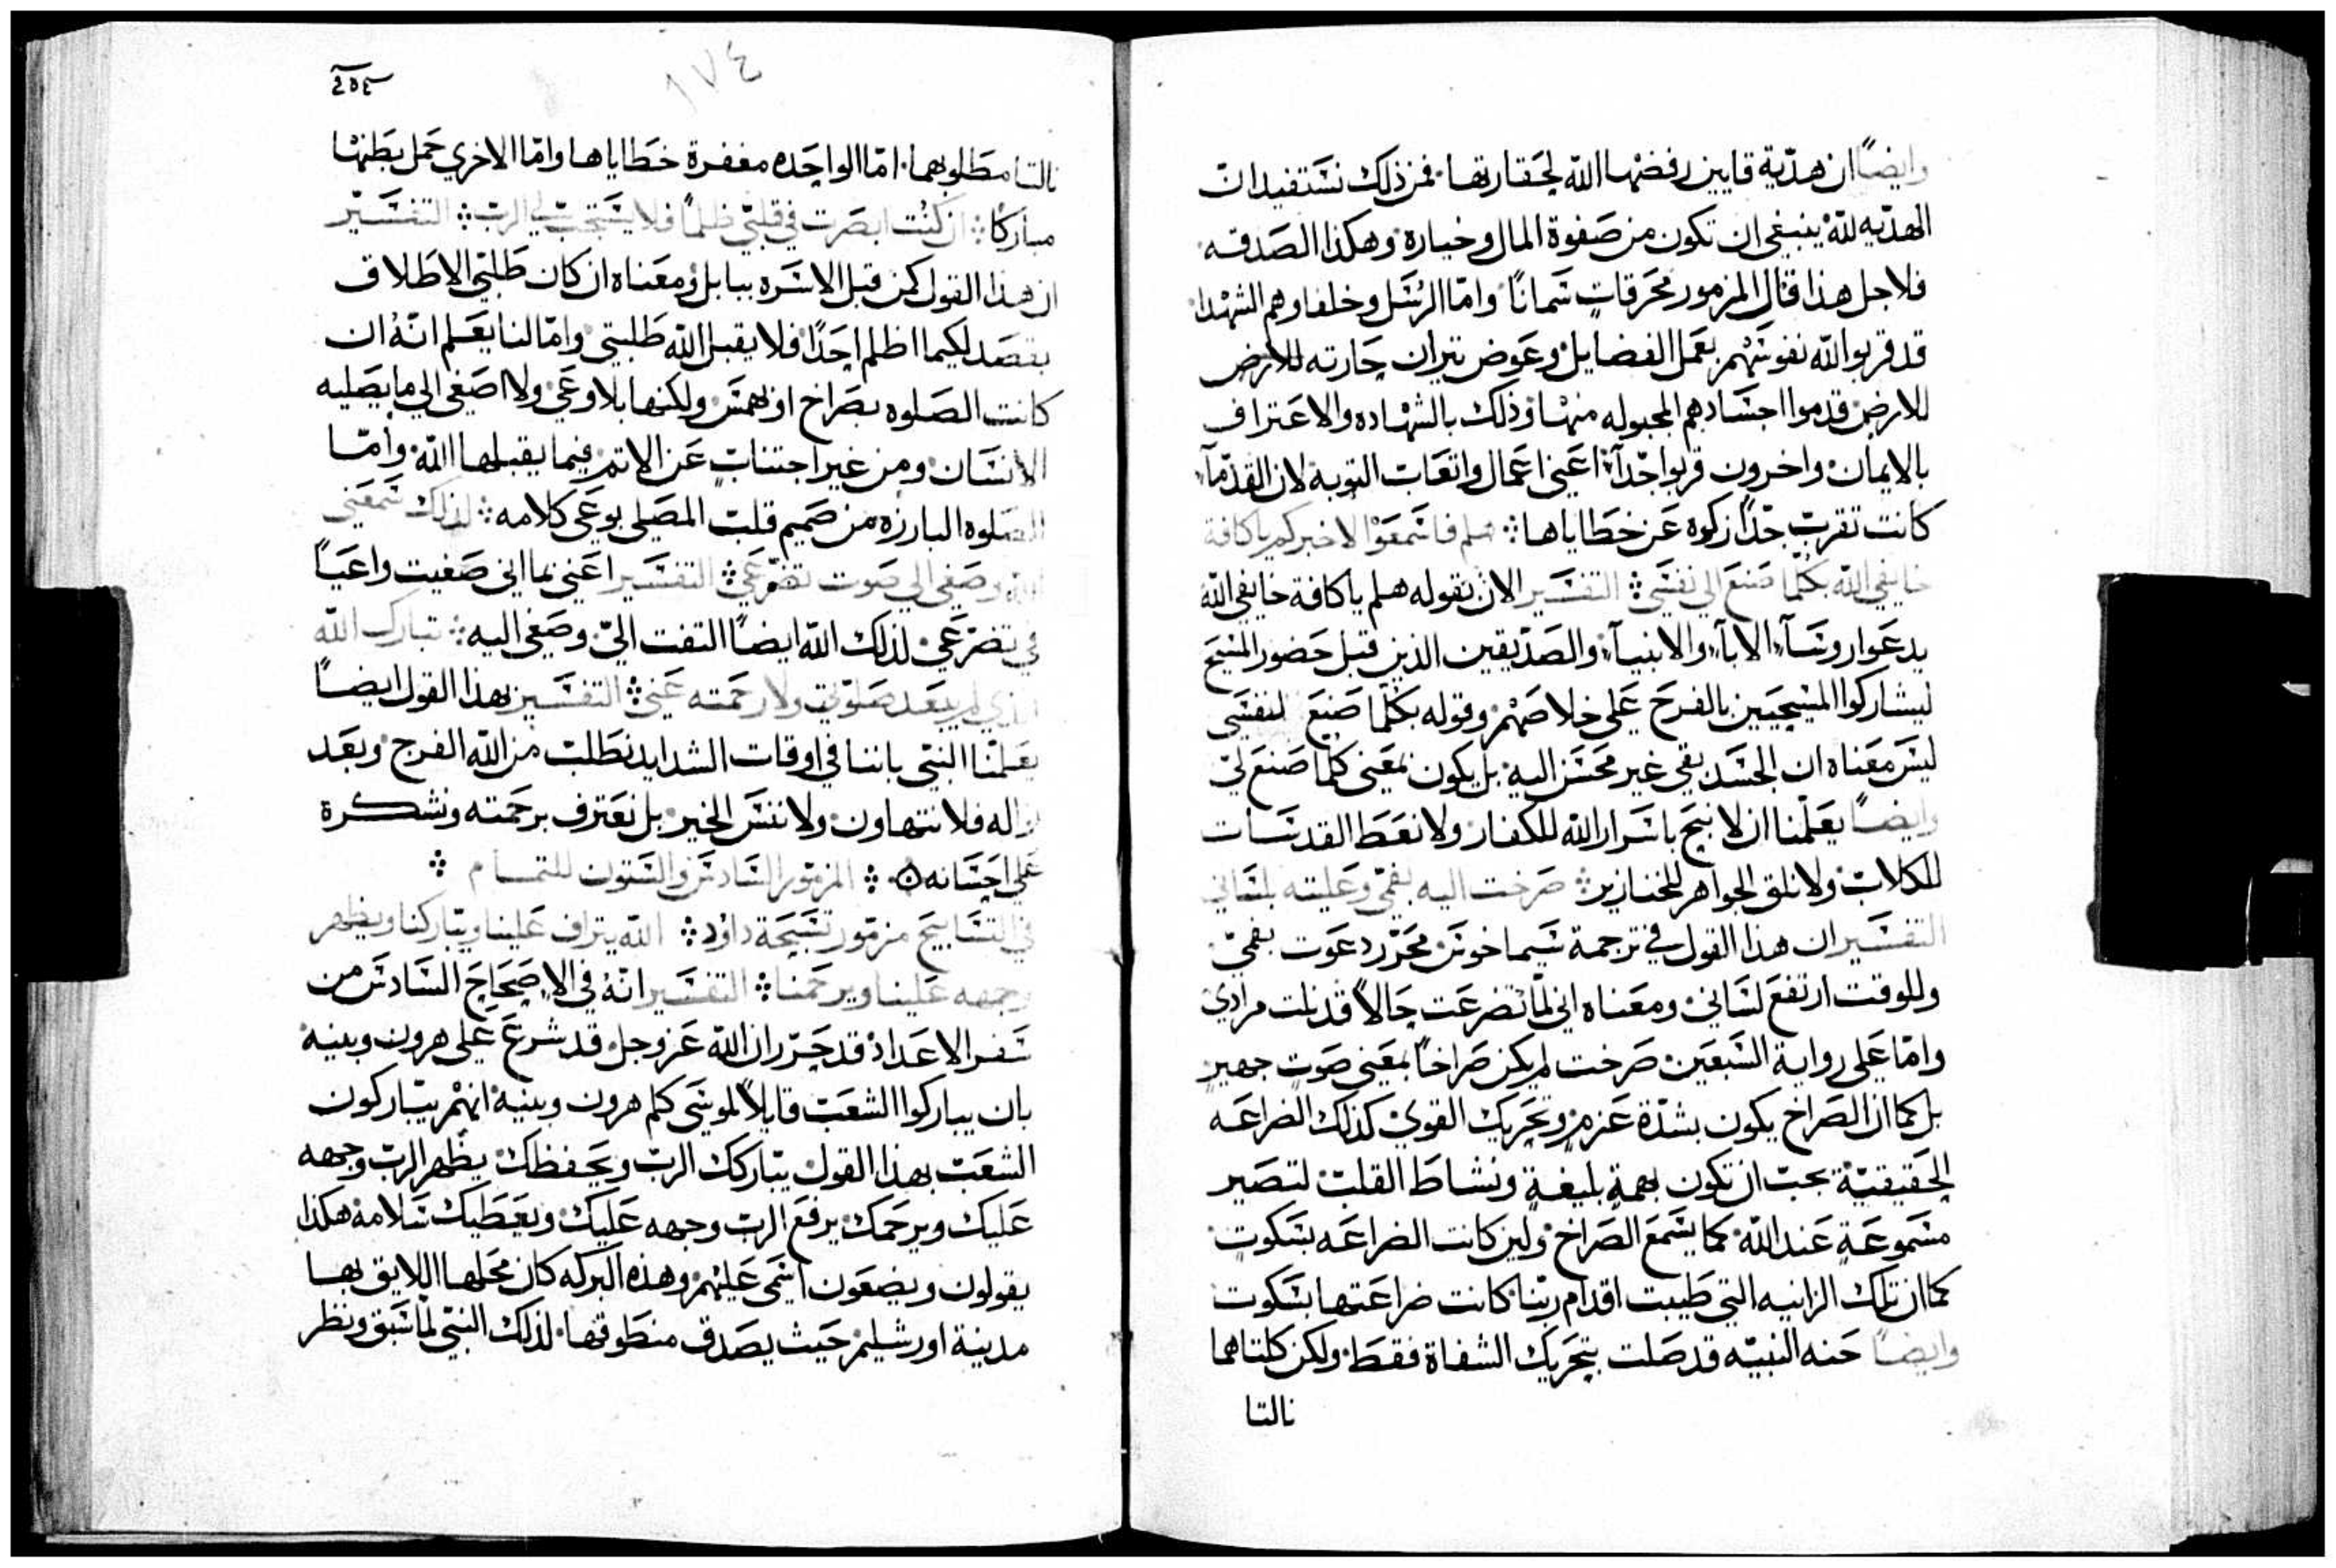 وايضاً ان هدية قايين رفضها الله لحقارتها. فمن ذلك نستفيد ان
الهديه لله ينبغي ان تكون من صفوة المال وخياره وهكذا الصدقه
فلاجل هذا قال المزمور محرقات سمانًا وامّا الرسل وخلفاوهم الشهدا
قد قربوا لله نفوسهم بعمل الفضايل وعوض تيران حارته للارض
للارض قدموا اجسادهم المجبوله منها وذلك بالشهاده والاعتراف
بالايمان واخرون قربوا جدآء اعني اعمال واتعاب التوبة لان القدمآء
كانت تقرب جدًا زكوه عن خطاياها ܀ هلم فاسمعوا لاخبركم يا كافة
خايفي الله بكلما صنع الي نفسي ܀ التفسير الان بقوله هلم يا كافة خايفي الله
يدعوا روسآء الابآء والانبيآء والصديقين الذين قبل حضور المسيح
ليشاركوا المسيحيين بالفرح علي خلاصهم وقوله بكلما صنع لنفسي
ليس معناه ان الجسد بقي غير محسن اليه بل يكون بمعني كلما صنع لي
وايضاً يعلمنا ان لا نبيح باسرار الله للكفار ولا نعط القدسات
للكلاب ولا نلق الجواهر للخنازير ܀ صرخت اليه بفمي وعليته بلساني
التفسير ان هذا القول في ترجمة سيماخوس محرر دعوت بفمي
وللوقت ارتفع لساني ومعناه اني لما تضرعت حالاً قد نلت مرادي
وامّا علي رواية السبعين صرخت لم يكن صراخاً بمعني صوت جهير
بل كما ان الصراخ يكون بشدة عزم وتحريك القوي كذلك الضراعه
الحقيقية يجب ان تكون بهمة بليغة ونشاط القلب لتصير
مسموعة عند الله كما يسمع الصراخ ولين كانت الضراعه بسكوت
كما ان تلك الزانيه التي طيبت اقدام ربنا كانت ضراعتها بسكوت
وايضاً حنه النبيه قد صلت بتحريك الشفاة فقط ولكن كلتاهما
نالتا
٢٥٤
١٧٤
نالتا مطلوبهما. امّا الواحده مغفرة خطاياها وامّا الاخري حمل بطنها
مباركًا ܀ ان كنت ابصرت في قلبي ظلماً فلا يستجب لي الرب ܀ التفسير
ان هذا القول كمن قبل الاسره ببابل ومعناه ان كان طلبتي الاطلاق
بقصد لكيما اظلم احدًا فلا يقبل الله طلبتي وامّا لنا يعلم انه ان
كانت الصلوه بصراخ او بهمس ولكنها بلا وعي ولا اصغي الي ما يصليه
الانسان ومن غير اجتناب عن الاثم فيما يقبلها الله وامّا
الصلوه البارزه من صميم قلب المصلي بوعي كلامه ܀ لذلك سمعني
الله وصغي الي صوت تضرعي ܀ التفسير اعني بما اني صغيت واعياً
في تضرعي لذلك الله ايضاً التفت الي وصغي اليه ܀ تبارك الله
الذي لم يبعد صلوتي ولا رحمته عني ܀ التفسير بهذا القول ايضاً
يعلمنا النبي باننا في اوقات الشدايد نطلب من الله الفرج وبعد
زاله فلا نتهاون ولا ننس الخير بل نعترف برحمته ونشكرة
علي احسانه ܀ المزمور السادس والستون للتمام ܀
في التسابيح مزمور تسبحة داود ܀ الله يتراف علينا ويباركنا ويظهر
وجهه علينا ويرحمنا ܀ التفسير انه في الاصحاح السادس من
سفر الاعداد قد حرّر ان الله عز وجل قد شرع علي هرون وبنيه
بان يباركوا الشعب قايلاً لموسي كلم هرون وبنيه انهم يباركون
الشعب بهذا القول يباركك الرب ويحفظك يظهر الرب وجهه
عليك ويرحمك يرفع الرب وجهه عليك ويعطيك سلامه هكذا
يقولون ويضعون اسمي عليهم وهذه البركه كان محلها اللايق بها
مدينة اورشليم حيث يصدق منطوقها. لذلك النبي لما سبق ونظر